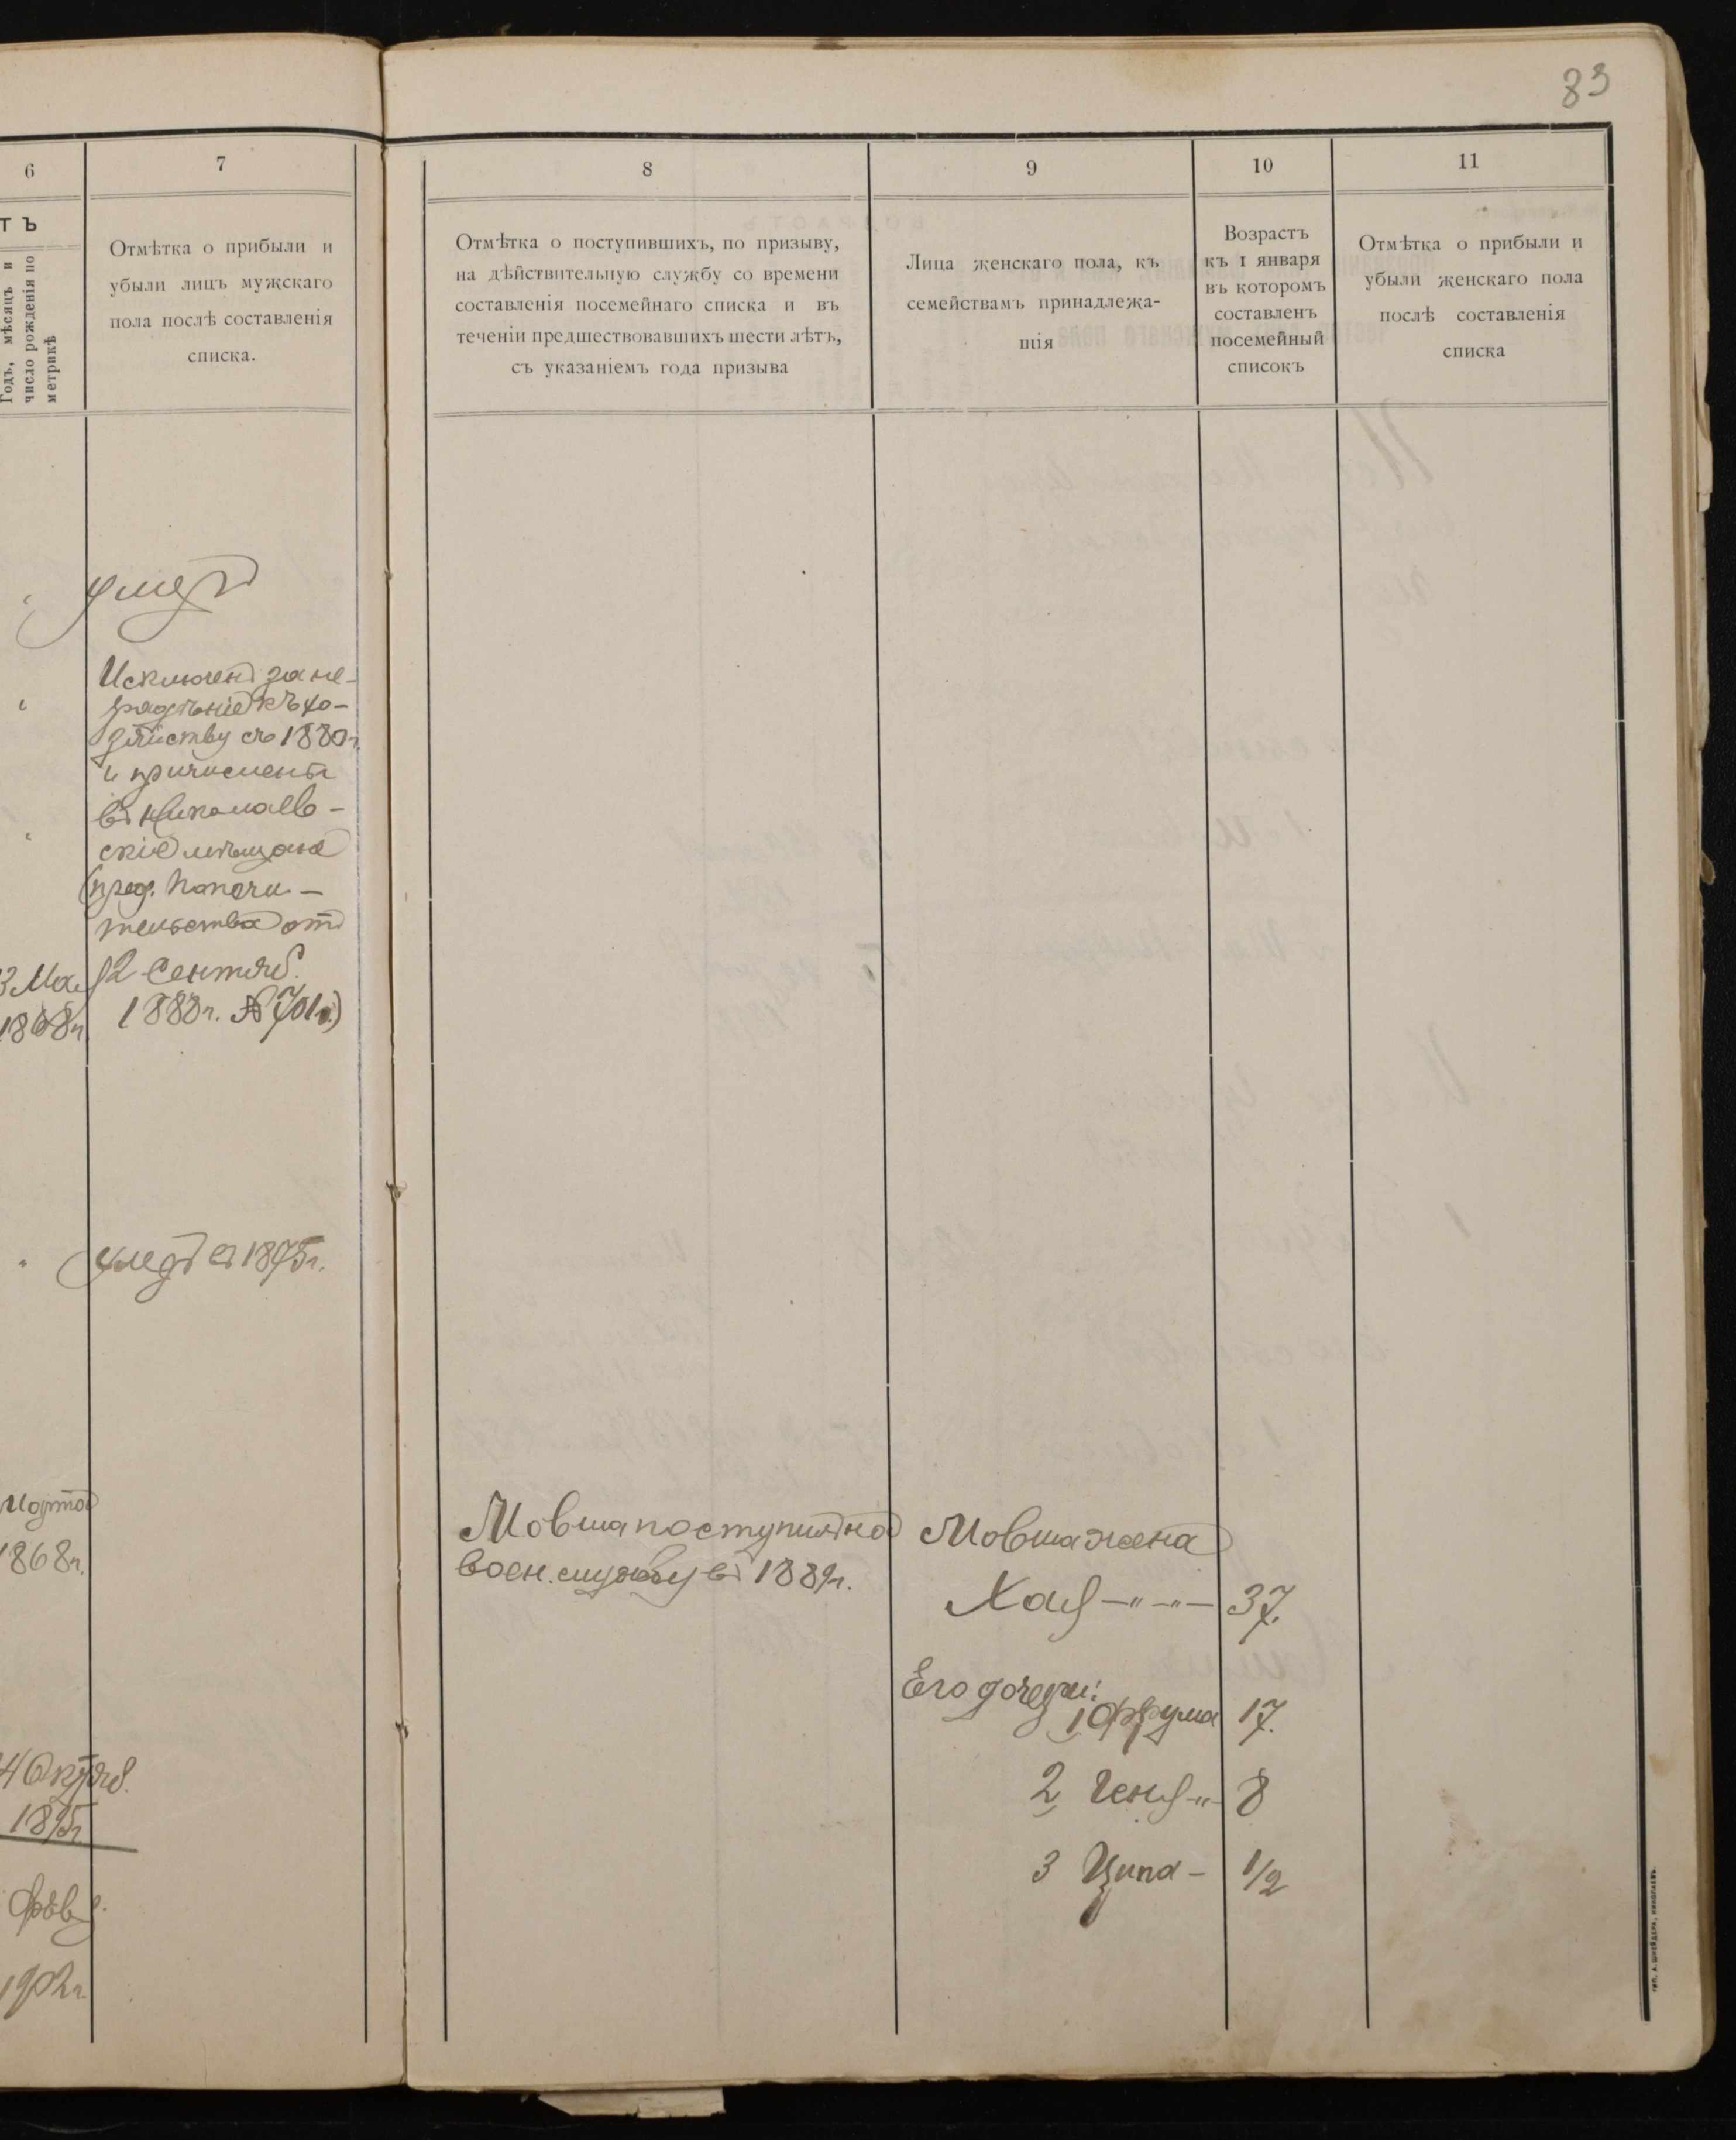 83
6
7
8
9
10
11
ТЪ
Годъ, мѣсяцъ и
число рожденія по
метрикѣ
Отмѣтка о прибыли и
убыли лицъ мужскаго
пола послѣ составленія
списка.
Отмѣтка о поступившихъ, по призыву,
на дѣйствительную службу со времени
составленія посемейнаго списка и въ
теченіи предшествовавшихъ шести лѣтъ,
съ указаніемъ года призыва
Лица женскаго пола, къ
семействамъ принадлежа-
щія
Возрастъ
къ 1 января
въ которомъ
составленъ
посемейный
списокъ
Отмѣтка о прибыли и
убыли женскаго пола
послѣ составленія
списка
умеръ
Исключенъ за не-
радѣніе къ хо-
зяйству съ 1880г.
и причисленъ
въ Николаев-
скіе мѣщане
(пред. Попечи-
тельства отъ
3 Мая
2 Сентяб.
1868г.
1880г. №701
умеръ въ 1875г.
Марта
1868г.
Мовша поступилъ на
воен. службу въ 1889г.
Мовша жена
Хая —"—"— 37.
Его дочери:
1 Фрума 17.
4 Октяб.
1895г.
2 Геня -"- 8
3 Ципа - 1/2
Февр.
1902г.
ТИП. А. ШНЕЙДЕРА, НИКОЛАЕВЪ.